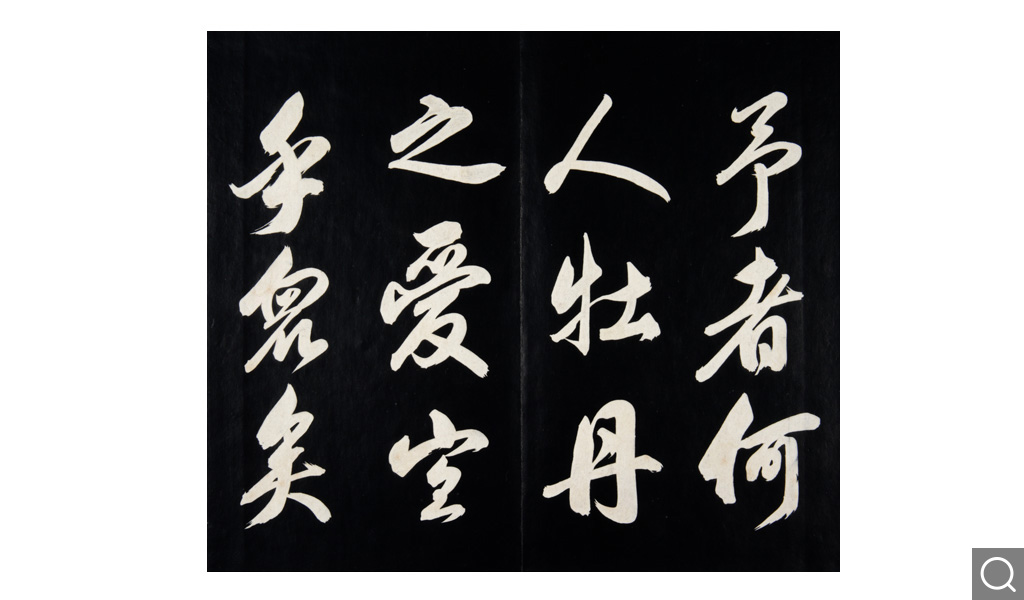 予者何
人牡丹
之愛宜
乎眾矣